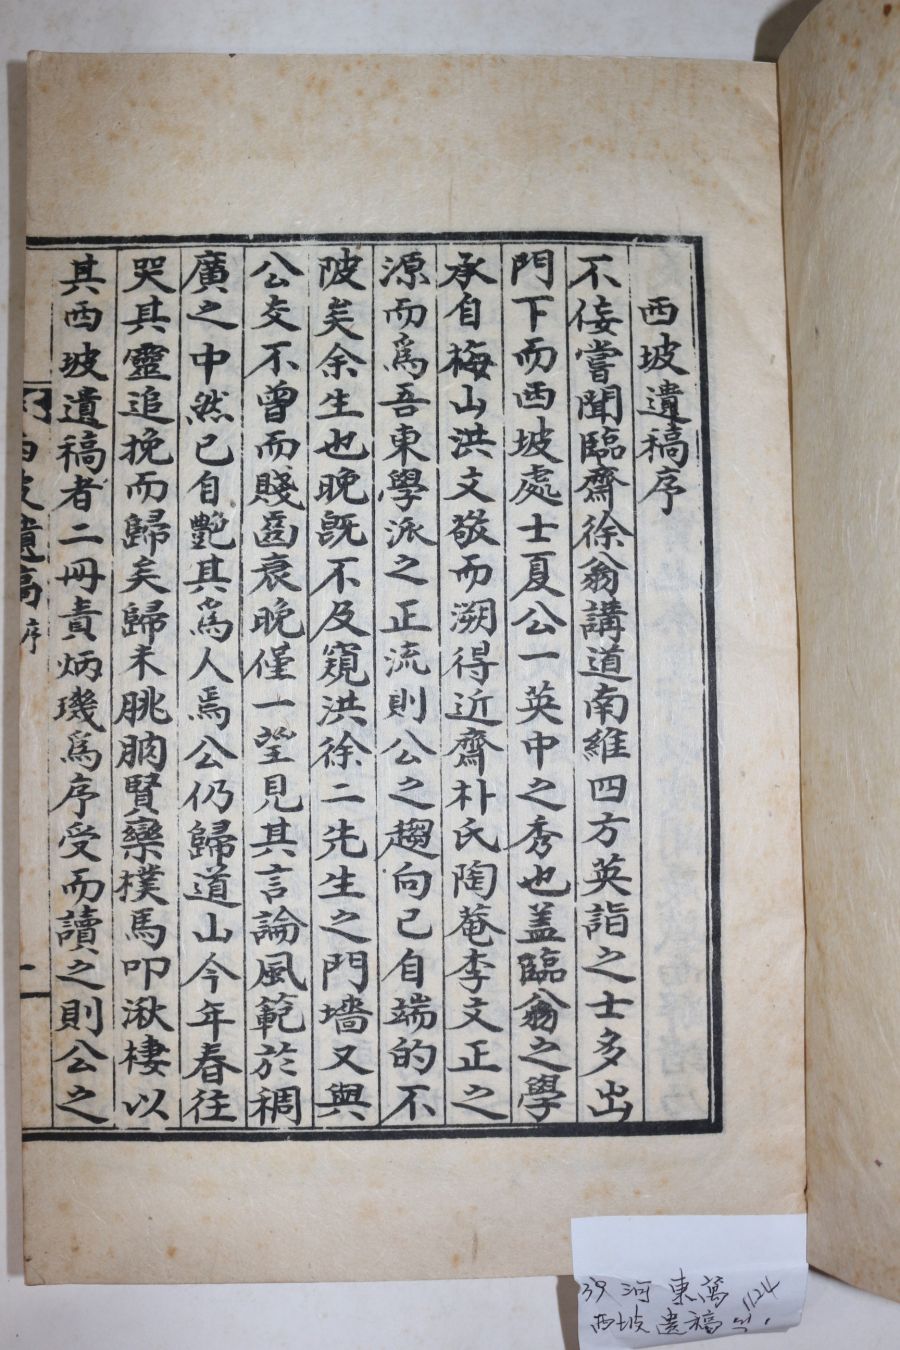 西坡遺稿序
不佞嘗聞臨齋徐翁講道南維四方英詣之士多出
門下而西坡處士夏公一英中之秀也盖臨翁之學
承自梅山洪文敬而溯得近齋朴氏陶菴李文正之
源而爲吾東學派之正流則公之趨向已自端的不
陂矣余生也晚旣不及窺洪徐二先生之門墻又與
公交不曾而賤齒衰晚僅一望見其言論風範於稠
廣之中然已自艶其爲人焉公仍歸道山今年春往
哭其靈追挽而歸矣歸未朓朒賢欒樸馬叩湫棲以
其西坡遺稿者二冊責炳璣爲序受而讀之則公之
西坡遺稿 序 一
39 河東萬 1124
西坡遺稿